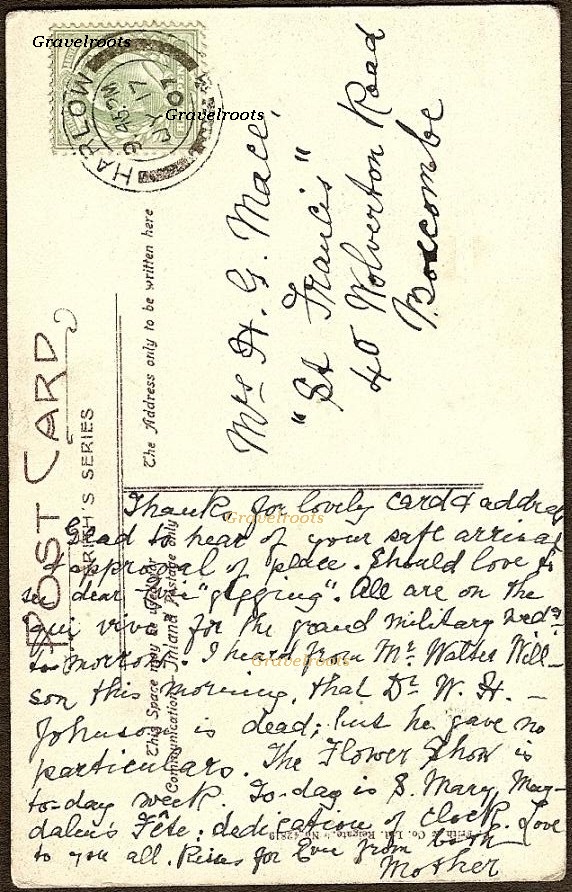 Gravelroots
Gravelroots
HARLOW
9 45 PM
JY 17
07
POST CARD
FRITH'S SERIES
This Space may be used for
Communication Inland Postage only
The Address only to be written here
Mrs H. G. Mace,
"St Francis"
40 Wolverton Road
Boscombe
Thanks for lovely card & address
Glad to hear of your safe arrival
& approval of place. Should love to
see dear "gigging". All are on the
qui vive for the grand military wedg
to-morrow. I heard from Mr. Walter Will-
son this morning, that Dr. W. H. -
Johnson is dead; but he gave no
particulars. The Flower Show is
to-day week. To-day is S. Mary Mag-
dalen's Fête; dedication of clock. Love
to you all. Kisses for Eve from both
Mother
Gravelroots
Gravelroots
Frith & Co. Ltd. Reigate. No. 42819